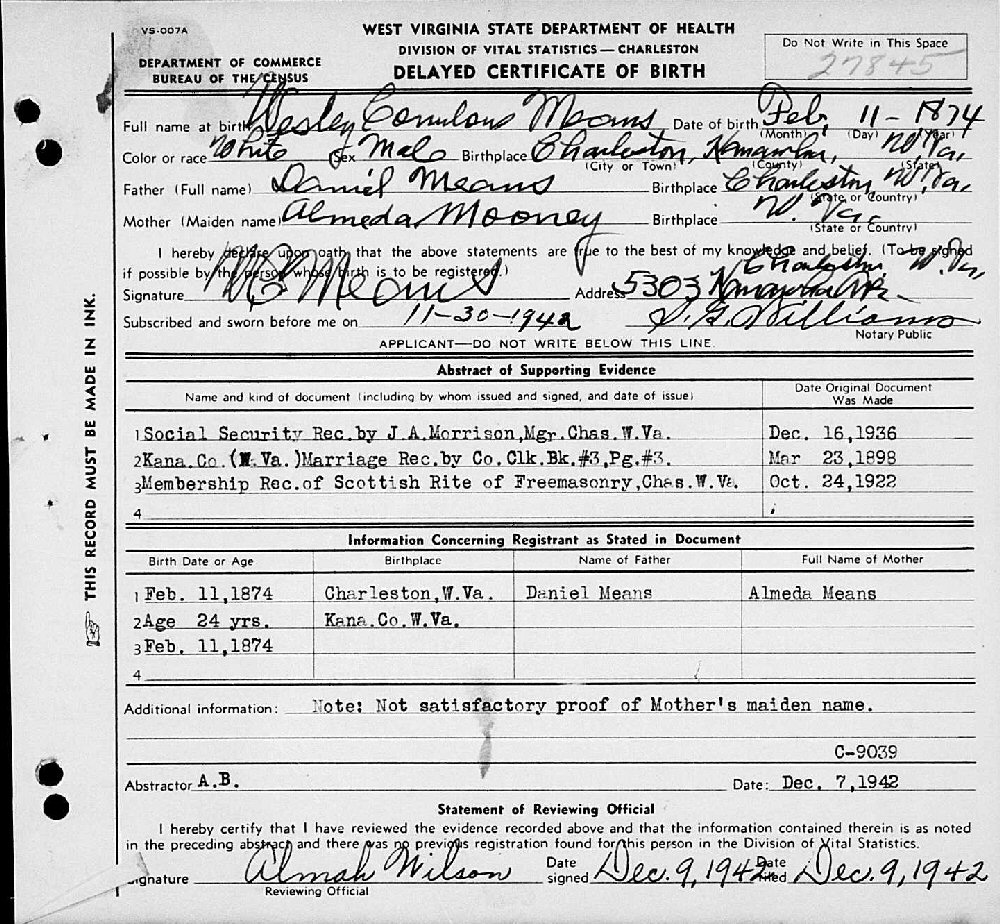 VS-007A
WEST VIRGINIA STATE DEPARTMENT OF HEALTH
DIVISION OF VITAL STATISTICS — CHARLESTON
DEPARTMENT OF COMMERCE
BUREAU OF THE CENSUS
DELAYED CERTIFICATE OF BIRTH
Do Not Write in This Space
27845
Full name at birth Wesley Means Date of birth Feb. 11 - 1874
(Month) (Day) (Year)
Color or race White Sex Male Birthplace Charleston, Kanawha, W. Va.
(City or Town) (County) (State)
Father (Full name) Daniel Means Birthplace Charleston, W. Va.
(State or Country)
Mother (Maiden name) Almeda Mooney Birthplace W. Va.
(State or Country)
I hereby declare upon oath that the above statements are true to the best of my knowledge and belief. (To be signed
if possible by the person whose birth is to be registered.)
Signature W C Means Address 5303 Charleston, W. Va.
Subscribed and sworn before me on 11-30-1942 Williams
Notary Public
APPLICANT—DO NOT WRITE BELOW THIS LINE.
Abstract of Supporting Evidence
Name and kind of document (including by whom issued and signed, and date of issue) Date Original Document Was Made
1 Social Security Rec. by J.A.Morrison,Mgr.Chas.W.Va. Dec. 16,1936
2 Kana.Co.(W.Va.)Marriage Rec.by Co.Clk.Bk.#3,Pg.#3. Mar 23,1898
3 Membership Rec.of Scottish Rite of Freemasonry,Chas.W.Va. Oct. 24,1922
4
Information Concerning Registrant as Stated in Document
Birth Date or Age Birthplace Name of Father Full Name of Mother
1 Feb. 11,1874 Charleston,W.Va. Daniel Means Almeda Means
2 Age 24 yrs. Kana.Co.W.Va.
3 Feb. 11,1874
4
Additional information: Note: Not satisfactory proof of Mother's maiden name.
C-9039
Abstractor A.B. Date: Dec. 7,1942
Statement of Reviewing Official
I hereby certify that I have reviewed the evidence recorded above and that the information contained therein is as noted
in the preceding abstract and there was no previous registration found for this person in the Division of Vital Statistics.
Signature Almah Wilson Date signed Dec. 9, 1942 Date filed Dec. 9, 1942
Reviewing Official
THIS RECORD MUST BE MADE IN INK.